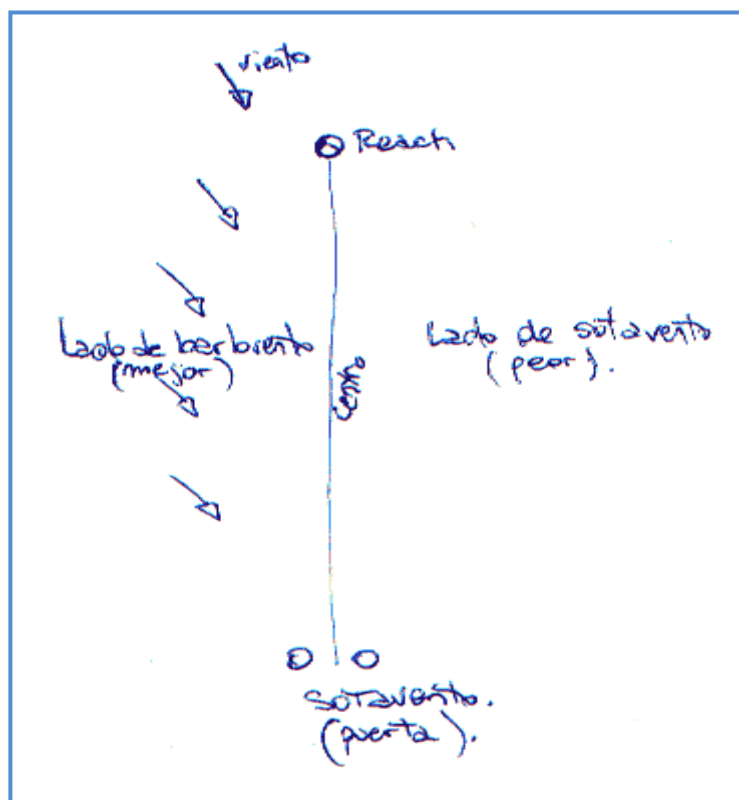 viento
Reach
Lado de barborento
(mejor)
Lado de sotavento
(peor).
centro
SOTAVENTO.
(puerta).